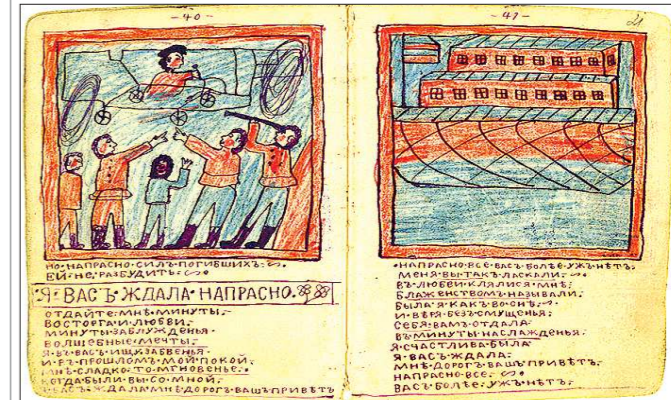 -40-
НО·НАПРАСНО·СИЛЪ·ПОГИБШИХЪ·
ЕЙ·НЕ·РАЗБУДИТЬ·
·Я·ВАСЪ·ЖДАЛА·НАПРАСНО·
ОТДАЙТЕ·МНѢ·МИНУТЫ·
ВОСТОРГА·И·ЛЮБВИ·
МИНУТЫ·ЗАБЛУЖДЕНЬЯ·
ВОЛШЕБНЫЕ·МЕЧТЫ·
Я·ВЪ·ВАСЪ·ИЩУ·ЗАБВЕНЬЯ·
ПРОШЛОМЪ·МОЙ·ПОКОЙ·
МНѢ·СЛАДКО·ТО·МГНОВЕНЬЕ·
КОГДА·БЫЛИ·ВЫ·СО·МНОЙ·
ВАСЪ·ЖДАЛА·МНѢ·ДОРОГЪ·ВАШЪ·ПРИВѢТЪ
-41-
21
·НАПРАСНО·ВСЕ·ВАСЪ·БОЛѢЕ·УЖЪ·НѢТЪ·
МЕНЯ·ВЫ·ТАКЪ·ЛАСКАЛИ·
ВЪ·ЛЮБВИ·КЛЯЛИСЯ·МНѢ·
БЛАЖЕНСТВОМЪ·НАЗЫВАЛИ·
БЫЛА·Я·КАКЪ·ВО·СНѢ·
И·ВѢРЯ·БЕЗЪ·СМУЩЕНЬЯ·
СЕБЯ·ВАМЪ·ОТДАЛА·
ВЪ·МИНУТЫ·НАСЛАЖДЕНЬЯ·
Я·СЧАСТЛИВА·БЫЛА·
Я·ВАСЪ·ЖДАЛА·
МНѢ·ДОРОГЪ·ВАШЪ·ПРИВѢТЪ·
НАПРАСНО·ВСЕ·
ВАСЪ·БОЛѢЕ·УЖЪ·НѢТЪ·